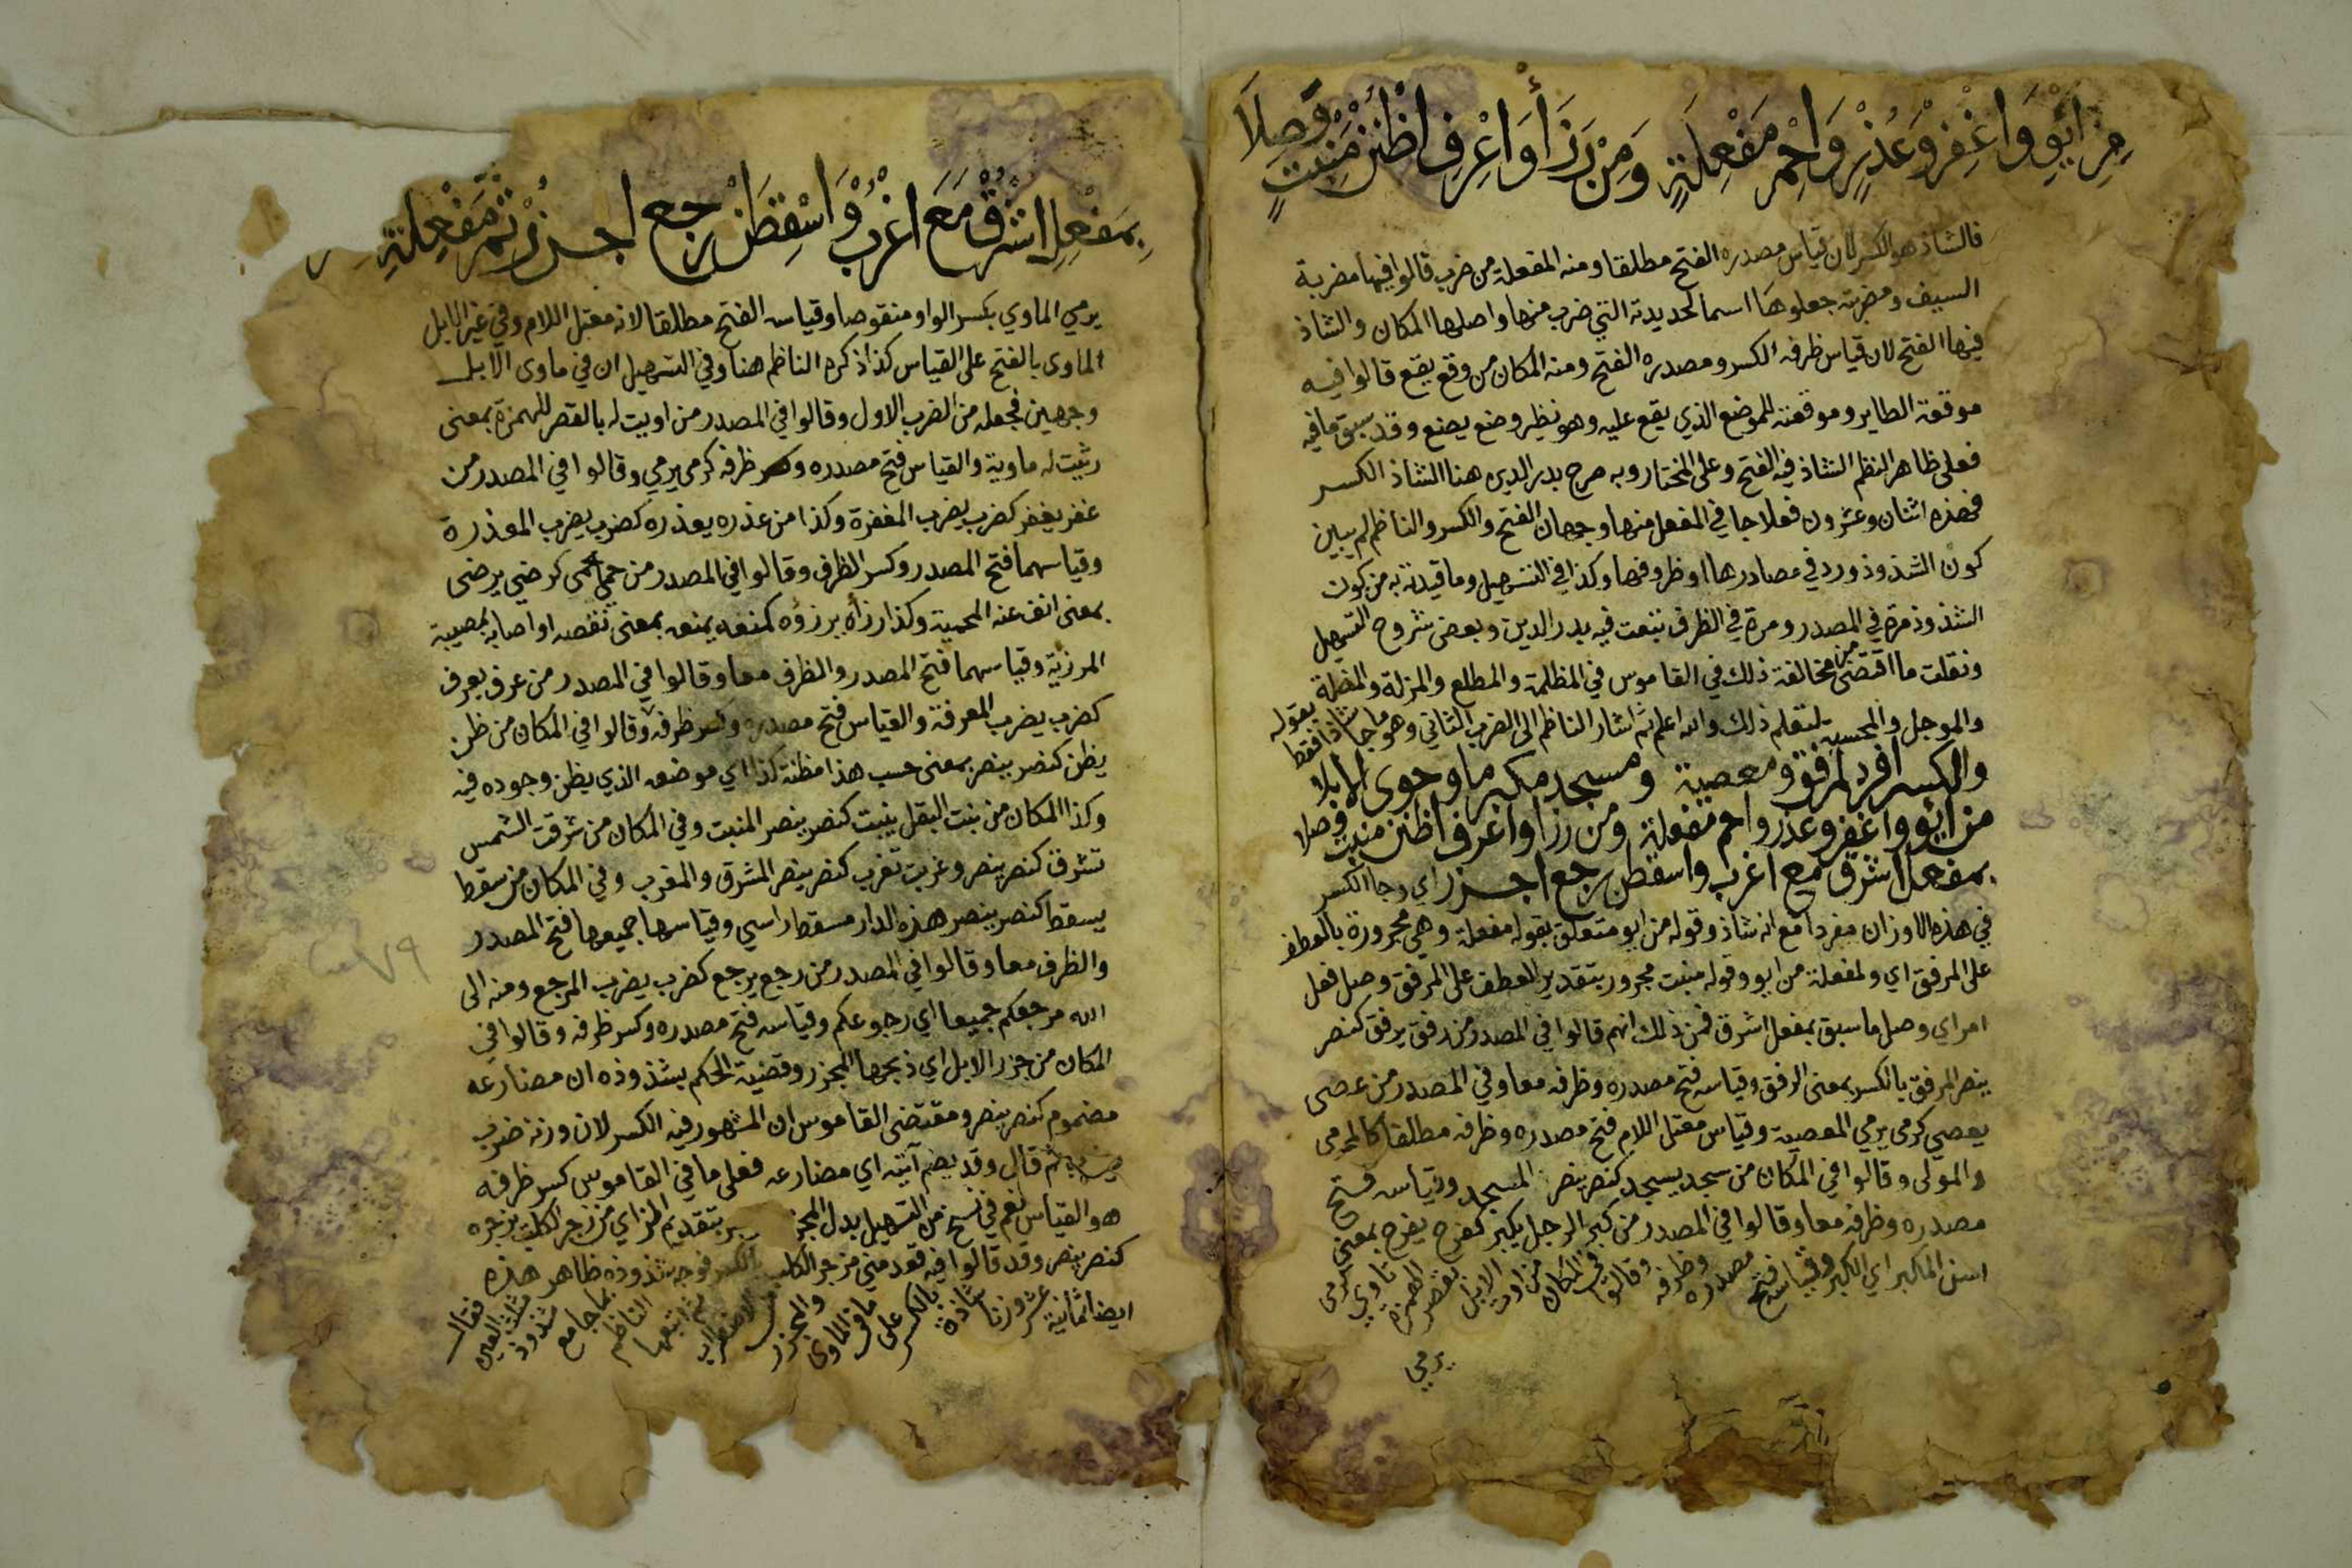 مِنِ ائْوِ وَاغْفِرْ وَعُذْرٍ وَاحْمِ مَفْعِلَةٍ وَمِنْ رَزَأ وَاعْرِفِ اظْنُنْ مَنْبِتٍ وَصِلَا
فالشاذ هو الكسر لان قياس مصدره الفتح مطلقا ومنه المفعلة من ضرب قالوا فيها مضربة
السيف ومضربته جعلوها اسما لحديدته التي ضرب منها واصلها المكان والشاذ
فيها الفتح لان قياس ظرفه الكسر ومصدره الفتح ومنه المكان من وقع يقع قالوا فيه
موقعة الطاير وموقعته للموضع الذي يقع عليه وهو نظير وضع يضع وقد سبق ما فيه
فعلى ظاهر النظم الشاذ فيه الفتح وعلى المختار وبه صرح بدر الدين هنا الشاذ الكسر
فهذه اثنان وعشرون فعلا جا في المفعل منها وجهان الفتح والكسر والناظم لم يبين
كون الشذوذ ورد في مصادرها او ظروفها وكذا في التسهيل وما قيدته به من كون
الشذوذ مرة في المصدر ومرة في الظرف تبعت فيه بدر الدين وبعض شروح التسهيل
ونقلت ما اقتضى من مخالفة ذلك في القاموس في المظلمة والمطلع والمزلة والمضلة
والموجل والمحسبة لتعلم ذلك والله اعلم ثم اشار الناظم الى الضرب الثاني وهو ما جا شاذا فقط بقوله
والكسر افرد لمرفق ومعصية ومسجد مكبر ماو حوى الابلا
من ائو واغفر وعذر واحم مفعلة ومن رزا واعرف اظنن منبت وصلا
بمفعل اشرق مع اغرب واسقطن رجع اجزر اي وجا الكسر
في هذه الاوزان مفردا مع انه شاذ وقوله من ايو متعلق بقوله مفعلة وهي مجرورة بالعطف
على المرفق اي ولمفعلة من ايو وقوله منبت مجرور بتقدير العطف على المرفق وصل فعل
امر اي وصل ما سبق بمفعل اشرق فمن ذلك انهم قالوا في المصدر من رفق يرفق كنصر
ينصر المرفق بالكسر بمعنى الرفق وقياسه فتح مصدره وظرفه معا وفي المصدر من عصى
يعصي كرمى يرمي المعصية وقياس معتل اللام فتح مصدره وظرفه مطلقا كالمرمى
والمولى وقالوا في المكان من سجد يسجد كنصر ينصر المسجد وقياسه فتح
مصدره وظرفه معا وقالوا في المصدر من كبر الرجل يكبر كفرح يفرح بمعنى
اسن المكبر اي الكبر وقياسه فتح مصدره وظرفه وقالوا في المكان من اوت الابل بقصر الهمزة تاوي كرمى
يرمي
بِمَفْعِلِ اشْرُقْ مَعَ اغْرُبْ وَاسْقُطَنْ رَجَعَ اجْزُرْ ثُمَّ مَفْعِلَةِ
يرمي الماوي بكسر الواو منقوصا وقياسه الفتح مطلقا لانه معتل اللام وفي غير الابل
الماوى بالفتح على القياس كذا ذكره الناظم هنا وفي التسهيل ان في ماوى الابل
وجهين فجعله من الضرب الاول وقالوا في المصدر من اويت له بالقصر للهمزة بمعنى
رثيت له ماوية والقياس فتح مصدره وكسر ظرفه كرمى يرمي وقالوا في المصدر من
غفر يغفر كضرب يضرب المغفرة وكذا من عذره يعذره كضرب يضرب المعذرة
وقياسهما فتح المصدر وكسر الظرف وقالوا في المصدر من حمي يحمى كرضي يرضى
بمعنى انف عنه المحمية وكذا رزاه يرزؤه كمنعه يمنعه بمعنى نقصه او اصابه بمصيبة
المرزية وقياسهما فتح المصدر والظرف معا وقالوا في المصدر من عرف يعرف
كضرب يضرب المعرفة والقياس فتح مصدره وكسر ظرفه وقالوا في المكان من ظن
يظن كنصر ينصر بمعنى حسب هذا مظنة كذا اي موضعه الذي يظن وجوده فيه
وكذا المكان من نبت البقل ينبت كنصر ينصر المنبت وفي المكان من شرقت الشمس
تشرق كنصر ينصر وغربت تغرب كنصر ينصر المشرق والمغرب وفي المكان من سقط
يسقط كنصر ينصر هذه الدار مسقط راسي وقياسها جميعها فتح المصدر
والظرف معا وقالوا في المصدر من رجع يرجع كضرب يضرب المرجع ومنه الى
الله مرجعكم جميعا اي رجوعكم وقياسه فتح مصدره وكسر ظرفه وقالوا في
المكان من جزر الابل اي ذبحها المجزر وقضية الحكم بشذوذه ان مضارعه
مضموم كنصر ينصر ومقتضى القاموس ان المشهور فيه الكسر لان وزنه ضرب
يضرب ثم قال وقد يضم آتيه اي مضارعه فعلى ما في القاموس كسر ظرفه
هو القياس نعم في نسخ من التسهيل بدل المجزر بتقديم الزاي من زجر الكلب يزجره
كنصر ينصر وقد قالوا فيه قعد مني مزجر الكلب بالكسر فوجه شذوذه ظاهر هذه
ايضا ثمانية عشر وزنا شاذة بالكسر على ما في الماوى والمجزر من الاضطراب ثم اتبعها الناظم بما جا مع شذوذه مثلث العين فقال